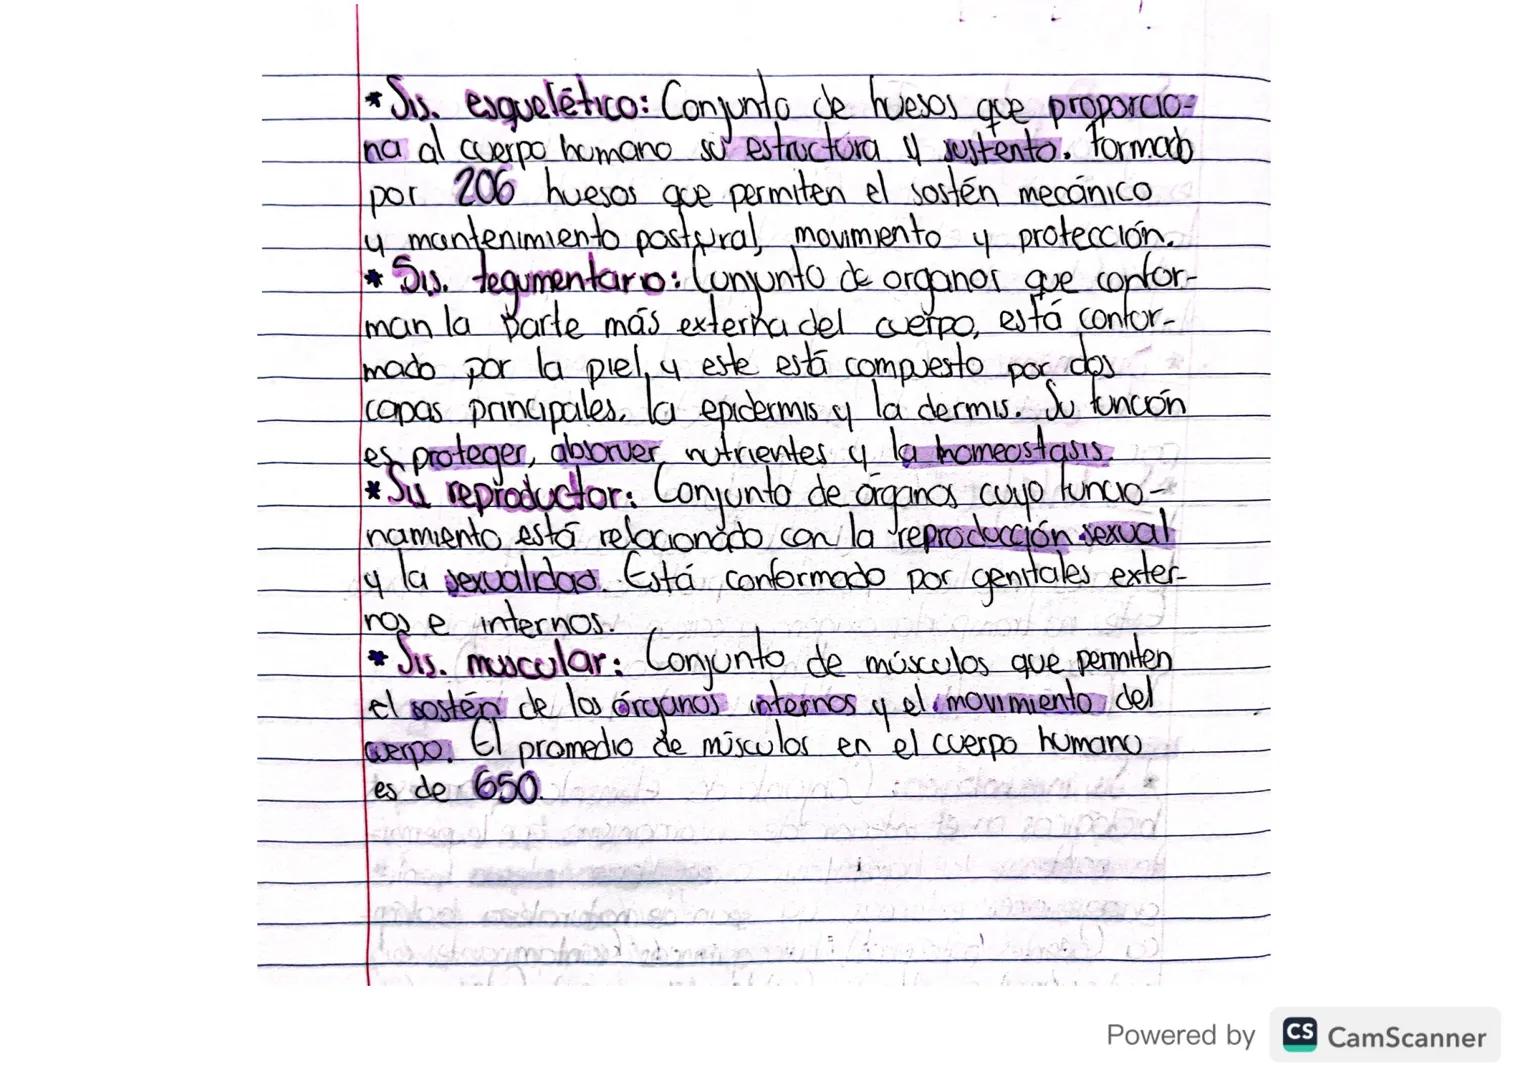 * Sis. esquelético: Conjunto de huesos que proporcio-
na al cuerpo humano su estructura y sustento. Formado
por 206 huesos que permiten el sostén mecánico
y mantenimiento postural, movimiento y protección.
* Sis. tegumentario: Conjunto de organos que confor-
man la parte más externa del cuerpo, está confor-
mado por la piel, y este está compuesto por dos
capas principales, la epidermis y la dermis. Su función
es proteger, absorver nutrientes y la homeostasis.
* Sis reproductor: Conjunto de órganos cuyo funcio-
namiento está relacionado con la reproducción sexual
y la sexualidad. Está conformado por genitales exter-
nos e internos.
* Sis. muscular: Conjunto de músculos que permiten
el sostén de los órganos internos y el movimiento del
cuerpo. El promedio de músculos en el cuerpo humano
es de 650.
Powered by CS CamScanner